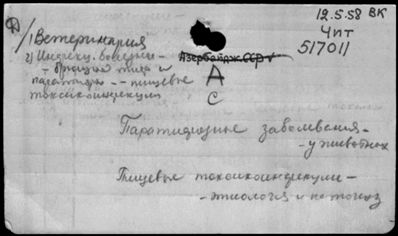 12.5.58 ВК
Чит
517011
1) Ветеринария
2) Инфекц. болезни –
– брюшной тиф и
паратифы – – пищевые
токсикоинфекции
Азербайдж. ССР
А
С
Паратифозные заболевания –
– у животных
Пищевые токсикоинфекции –
– этиология и патогенез